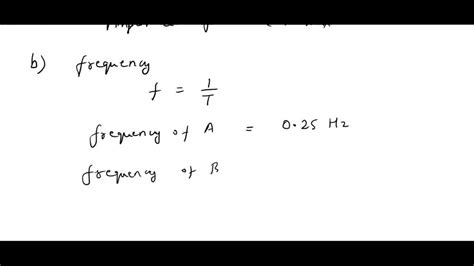 b) frequency
f = 1/T
frequency of A = 0.25 Hz
frequency of B